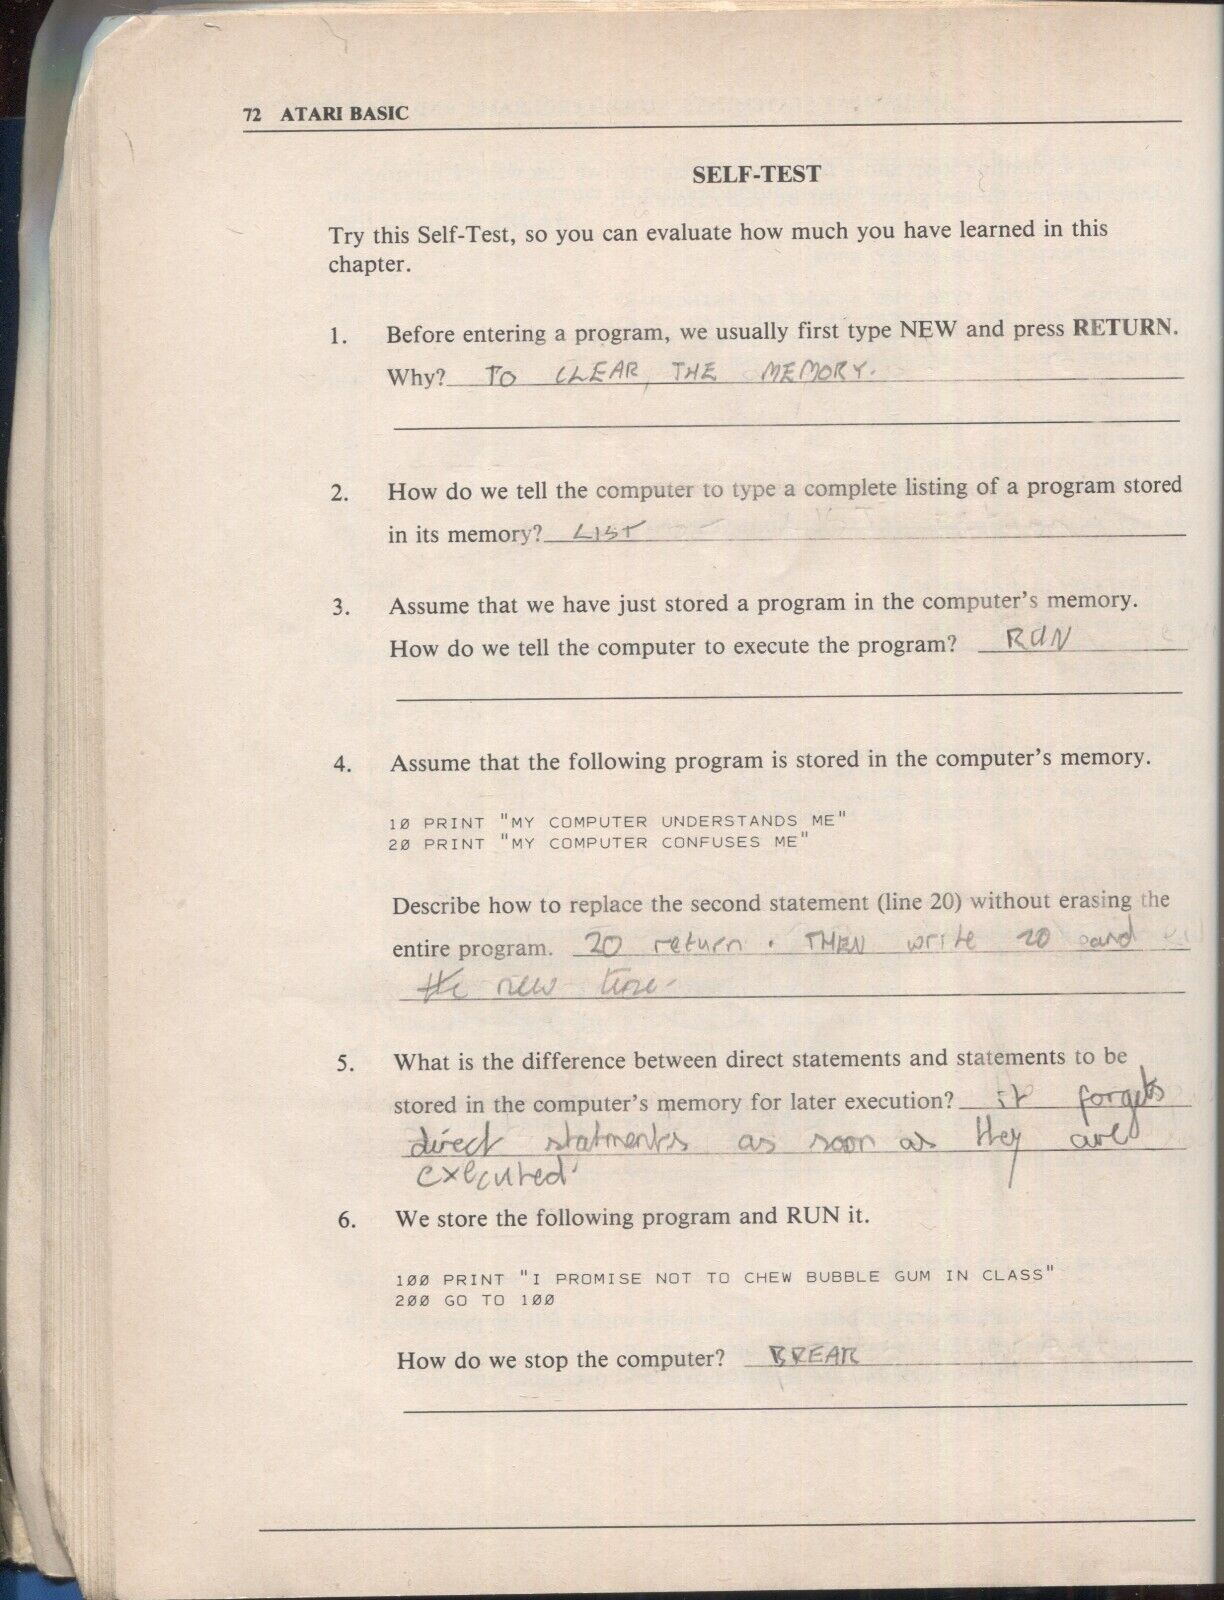 72 ATARI BASIC
SELF-TEST
Try this Self-Test, so you can evaluate how much you have learned in this
chapter.
1. Before entering a program, we usually first type NEW and press RETURN.
Why? TO CLEAR THE MEMORY.
2. How do we tell the computer to type a complete listing of a program stored
in its memory? LIST
3. Assume that we have just stored a program in the computer's memory.
How do we tell the computer to execute the program? RUN
4. Assume that the following program is stored in the computer's memory.
10 PRINT "MY COMPUTER UNDERSTANDS ME"
20 PRINT "MY COMPUTER CONFUSES ME"
Describe how to replace the second statement (line 20) without erasing the
entire program. 20 return. THEN write 20 and
the new line.
5. What is the difference between direct statements and statements to be
stored in the computer's memory for later execution? it forgets
direct statments as soon as they are
executed
6. We store the following program and RUN it.
100 PRINT "I PROMISE NOT TO CHEW BUBBLE GUM IN CLASS"
200 GO TO 100
How do we stop the computer? BREAK